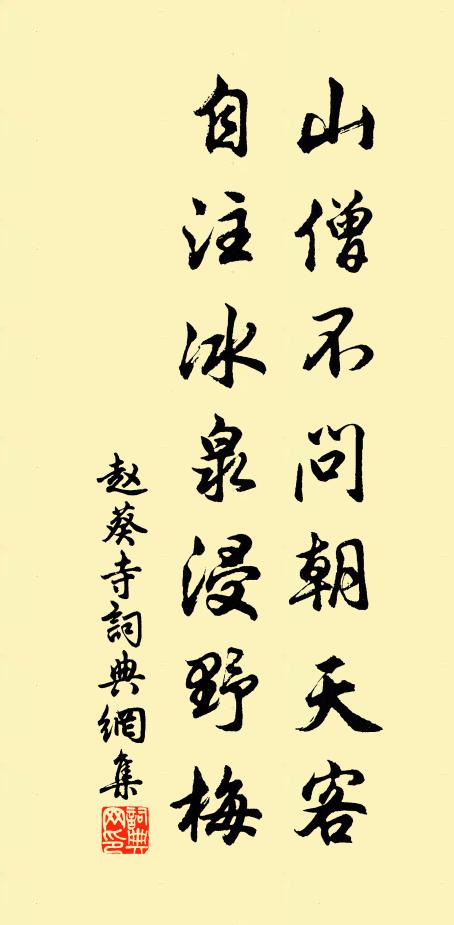 山僧不问朝天客
自注冰泉浸野梅
赵葵寺詞典網集
詞典网印